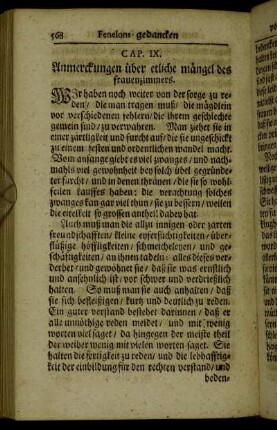 568 Fenelons gedancken
CAP. IX.
Anmerckungen über etliche mängel des
frauenzimmers.
WIr haben noch weiter von der sorge zu re-
den/ die man tragen muß/ die mägdlein
vor verschiedenen fehlern/ die ihrem geschlechte
gemein sind/ zu verwahren. Man ziehet sie in
einer zärtligkeit und furcht auf/ die sie ungeschickt
zu einem festen und ordentlichen wandel macht.
Vom anfange giebt es viel zwanges/ und nach-
mahls viel gewohnheit bey solch übel gegründe-
ter furcht/ und in denen thränen/ die sie so wohl-
feilen kauffes haben: die verachtung solches
zwanges kan gar viel thun/ sie zu bessern/ weilen
die eitelkeit so grossen antheil dabey hat.
Auch muß man die allzu innigen oder zarten
freundschafften/ kleine eyfersüchtigkeiten/ über-
flüßige höffligkeiten/ schmeicheleyen/ und ge-
schäftigkeiten/ an ihnen tadeln: alles dieses ver-
derbet/ und gewohnet sie/ daß sie was ernstlich
und ansehnlich ist/ vor schwer und verdrießlich
halten. So muß man sie auch anhalten/ daß
sie sich befleißigen/ kurtz und deutlich zu reden.
Ein guter verstand bestehet darinnen/ daß er
alle unnöthige reden meidet/ und mit wenig
worten viel saget/ da hingegen der meiste theil
der weiber wenig mit vielen worten saget. Sie
halten die fertigkeit zu reden/ und die lebhafftig-
keit der einbildung für den rechten verstand/ und
beden-